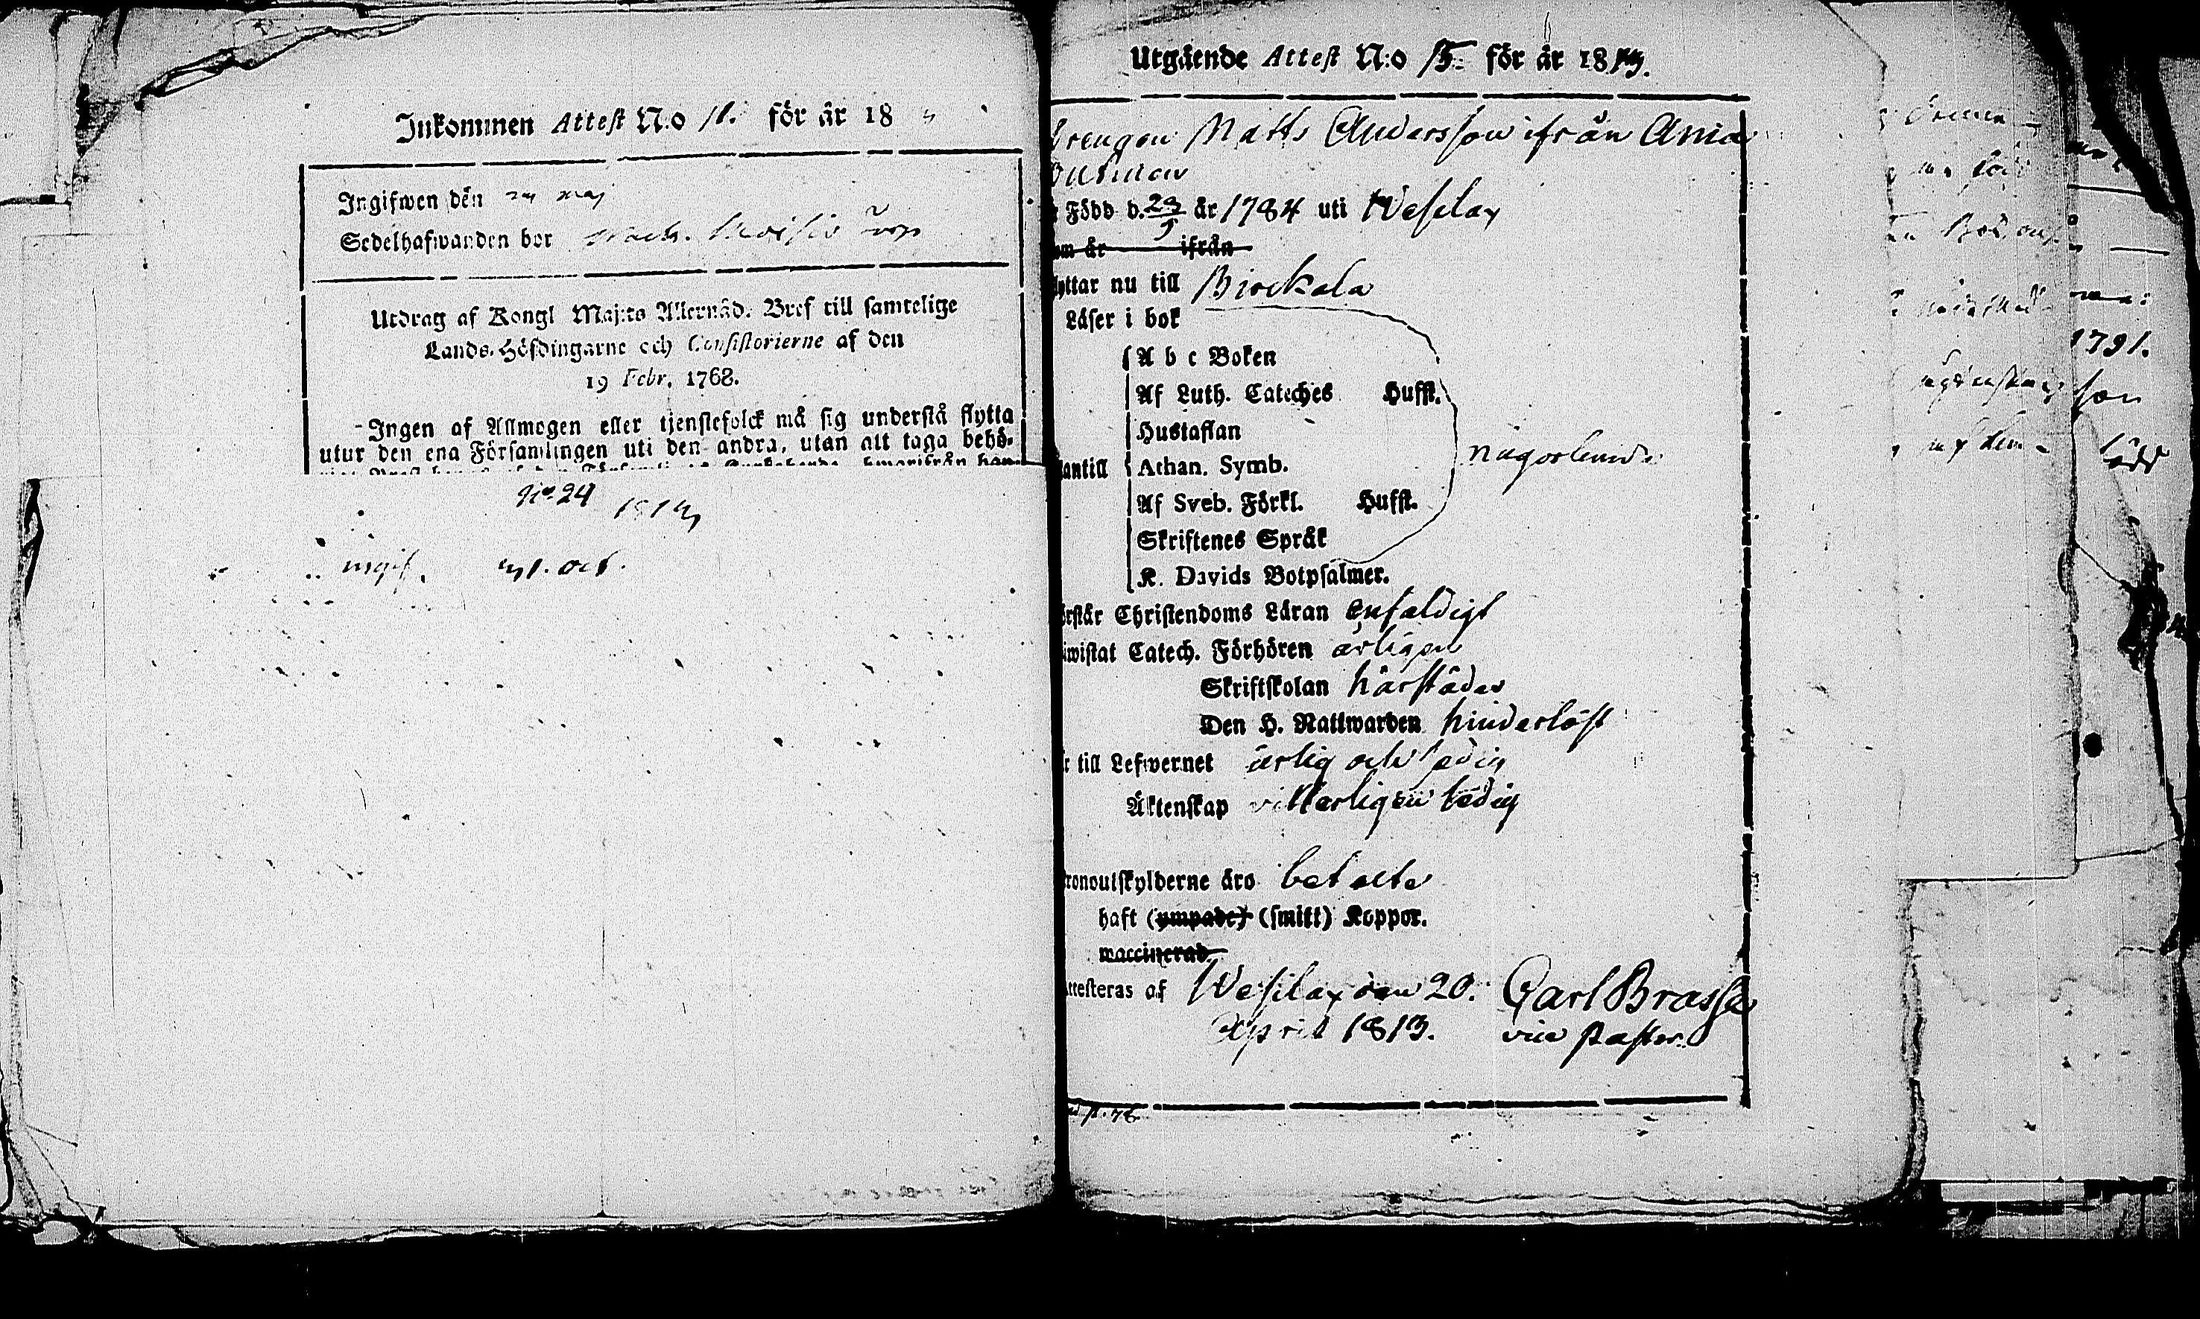 Inkommen Attest N:o 11. för år 18
Ingifwen den 24 maj
Sedelhafwanden bor
Utdrag af Kongl Maj:ts Allernåd. Bref till samtelige
Lands-Höfdingarne och Consistorierne af den
19 Febr. 1768.
Ingen af Allmogen eller tjenstefolck må sig understå flytta
utur den ena Församlingen uti den andra, utan att taga behö-
No. 24
ingif. 31. oct.
Utgående Attest N:o 15 för år 1813.
Drengen Matts Andersson ifrån Ania
Född d. 29/5 år 1784 uti Wesilax
om år ifrån
lyttar nu till Birckala
Läser i bok
A b c Boken
Af Luth. Cateches Husst.
Hustaflan
Athan. Symb.
någorlunda
antill
Af Sveb. Förkl. Husst.
Skriftenes Språk
K. Davids Botpsalmer.
örstår Christendoms Läran enfaldigt
iwistat Catech. Förhören årligen
Skriftskolan härstädes
Den H. Nattwarden hinderlöst
r till Lefwernet ärlig och sedig
Äktenskap vitterligen ledig
ronoutskylderne äro betalte
haft (ympade) (smitt) Koppor.
waccinerad.
Attesteras af Wesilax den 20. Carl Brasse
April 1813. vice Pastor.
1791.
son
född